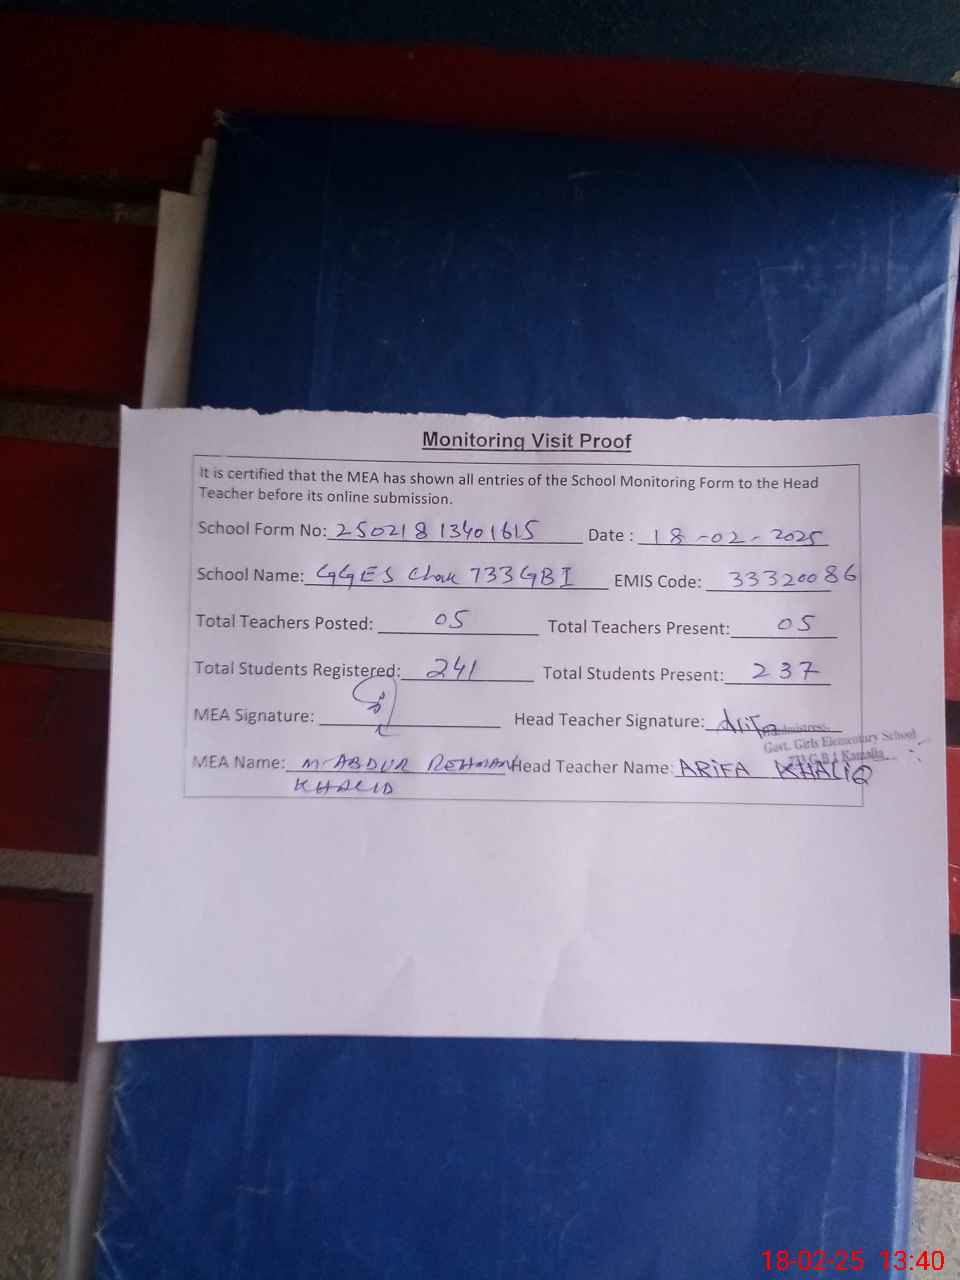 Monitoring Visit Proof
It is certified that the MEA has shown all entries of the School Monitoring Form to the Head
Teacher before its online submission.
School Form No: 25021813401615 Date : 18-02-2025
School Name: GGES Chak 733GBI EMIS Code: 33320086
Total Teachers Posted: 05 Total Teachers Present: 05
Total Students Registered: 241 Total Students Present: 237
MEA Signature: Head Teacher Signature: Arifa
Govt. Girls Elementary School
G.B I Kamalia
MEA Name: M-ABDUR REHMAN Head Teacher Name: ARIFA KHALIQ
KHALID
18-02-25 13:40